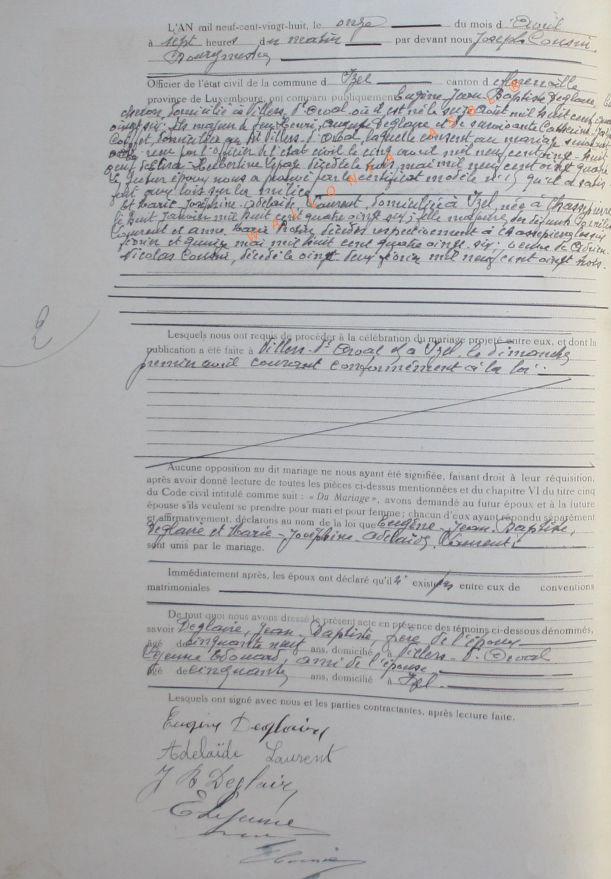 L'AN mil neuf-cent-vingt-huit, le onze du mois d'Avril
à sept heures du matin par devant nous Joseph Cousin
Bourgmestre
Officier de l'état civil de la commune d'Izel canton de Florenville
province de Luxembourg, ont comparu publiquement Eugène Jean Baptiste Deglaire,
domicilié à Villers d. Orval où il est né le sept août mil huit cent quatre
vingt six; fils majeur de feu Henri, Auguste Deglaire et de survivante Catherine
domiciliée à Villers d. Orval, laquelle consent au mariage
par l'officier de l'état civil le cinq avril mil neuf cent vingt huit
Hubertine Lepage décédée le mai mil neuf cent vingt quatre
le futur époux nous a prouvé par le certificat modèle qu'il a satis
fait aux lois sur la milice
et Marie Joséphine Adélaïde Laurent, domiciliée à Izel, née à Chassepierre
le huit Janvier mil huit cent quatre vingt six; fille majeure des défunts
Laurent et Anne Marie décédés respectivement à Chassepierre les six
février et quinze mai mil huit cent quatre vingt six; veuve de
Nicolas Cousin, décédé le vingt deux février mil neuf cent vingt trois.
WALLONIA
2
Lesquels nous ont requis de procéder à la célébration du mariage projeté entre eux, et dont la
publication a été faite à Villers d. Orval et à Izel, le dimanche
premier avril courant conformément à la loi
Aucune opposition au dit mariage ne nous ayant été signifiée, faisant droit à leur réquisition,
après avoir donné lecture de toutes les pièces ci-dessus mentionnées et du chapitre VI du titre cinq
du Code civil intitulé comme suit : « Du Mariage », avons demandé au futur époux et à la future
épouse s'ils veulent se prendre pour mari et pour femme; chacun d'eux ayant répondu séparément
et affirmativement, déclarons au nom de la loi que Eugène-Jean-Baptiste,
Deglaire et Marie-Joséphine-Adélaïde, Laurent
sont unis par le mariage.
Immédiatement après, les époux ont déclaré qu'il n'existe pas entre eux de conventions
matrimoniales
De tout quoi nous avons dressé le présent acte en présence des témoins ci-dessous dénommés,
savoir Deglaire, Jean-Baptiste, frère de l'époux
âgé de cinquante neuf ans, domicilié à Villers-d. Orval
Lejeune Edouard, ami de l'épouse
âgé de cinquante ans, domicilié à Izel
Lesquels ont signé avec nous et les parties contractantes, après lecture faite.
Eugène Deglaire
Adelaïde Laurent
J B Deglaire
E Lejeune